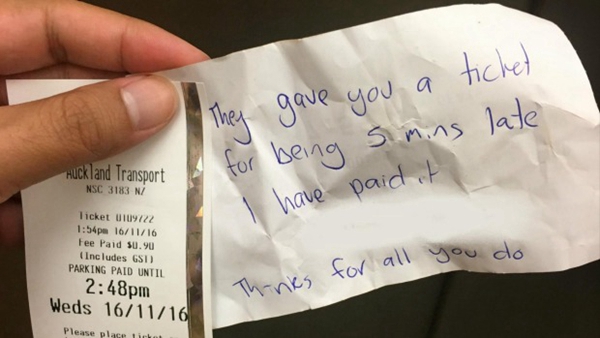 Auckland Transport
NSC 3183 NZ
1:54pm 16/11/16
Fee Paid $0.90
(Includes GST)
PARKING PAID UNTIL
2:48pm
Weds 16/11/16
Please place ticket
They gave you a ticket
for being 5 mins late
I have paid it
Thanks for all you do